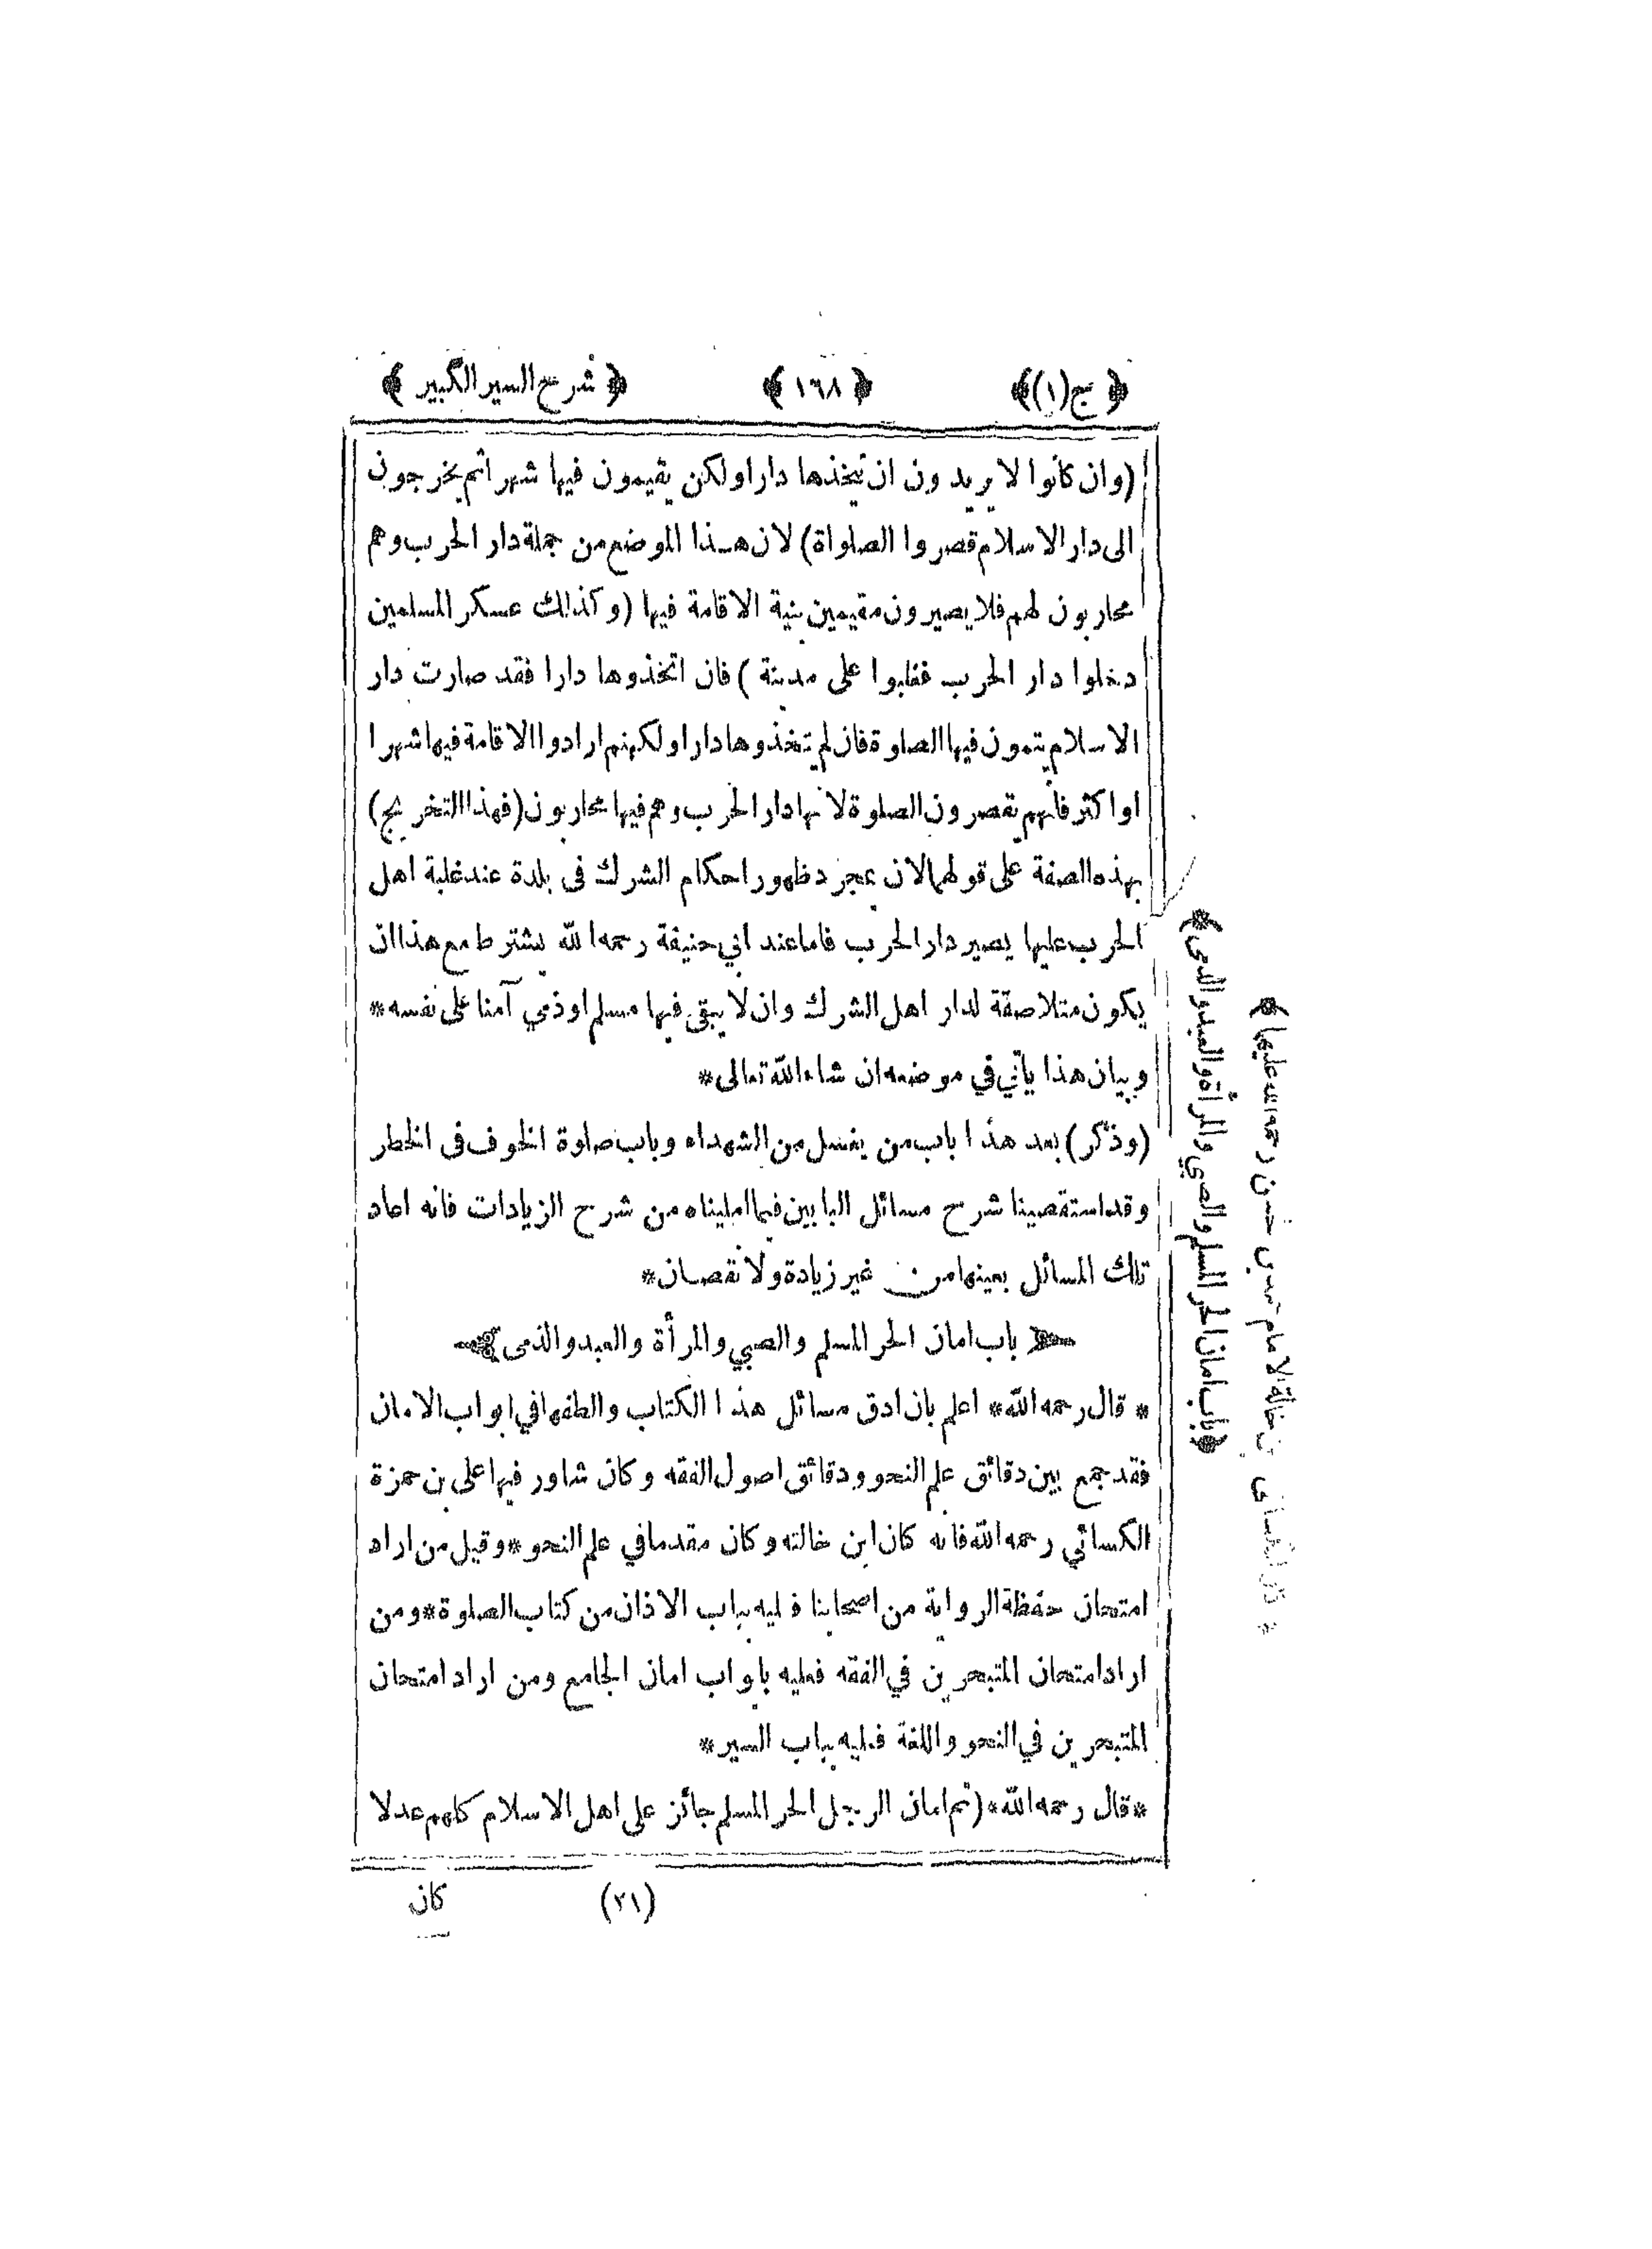 ﴿ ج (١) ﴾ ﴿ ١٦٨ ﴾ ﴿ شرح السير الكبير ﴾
(وان كانوا لا يريدون ان تتخذها دارا ولكن يقيمون فيها شهرا ثم يخرجون
الى دار الاسلام قصروا الصلواة) لان هذا الموضع من جملة دار الحرب وهم
محاربون لهم فلا يصيرون مقيمين بنية الاقامة فيها (وكذلك عسكر المسلمين
دخلوا دار الحرب فغلبوا على مدينة) فان اتخذوها دارا فقد صارت دار
الاسلام يتمون فيها الصلوة فان لم يتخذوها دارا ولكنهم ارادوا الاقامة فيها شهرا
او اكثر فانهم يقصرون الصلوة لانها دار الحرب وهم فيها محاربون (فهذا التخريج)
بهذه الصفة على قولهما لان بمجرد ظهور احكام الشرك فى بلدة عند غلبة اهل
الحرب عليها يصير دار الحرب فاما عند ابي حنيفة رحمه الله يشترط مع هذا ان
يكون متلاصقة لدار اهل الشرك وان لا يبقى فيها مسلم او ذمي آمنا على نفسه *
وبيان هذا يأتي في موضعه ان شاء الله تعالى *
(وذكر) بعد هذا باب من يغسل من الشهداء وباب صلوة الخوف فى الخطار
وقد استقصينا شرح مسائل البابين فيما امليناه من شرح الزيادات فانه اعاد
تلك المسائل بعينها من غير زيادة ولا نقصان *
باب امان الحر المسلم والصبي والمرأة والعبد والذمى
* قال رحمه الله * اعلم بان ادق مسائل هذا الكتاب والطفها في ابواب الامان
فقد جمع بين دقائق علم النحو ودقائق اصول الفقه وكان شاور فيها على بن حمزة
الكسائي رحمه الله فانه كان ابن خالته وكان مقدما في علم النحو * وقيل من اراد
امتحان حفظة الرواية من اصحابنا فعليه بباب الاذان من كتاب الصلوة * ومن
اراد امتحان المتبحرين في الفقه فعليه بابواب امان الجامع ومن اراد امتحان
المتبحرين في النحو واللغة فعليه بباب السير *
* قال رحمه الله * (ثم امان الرجل الحر المسلم جائز على اهل الاسلام كلهم عدلا
(٢١) كان
﴿ باب امان الحر المسلم والصبي والمرأة والعبد والذمى ﴾
خالة الامام محمد بن حسن رحمه الله عليهما ﴾